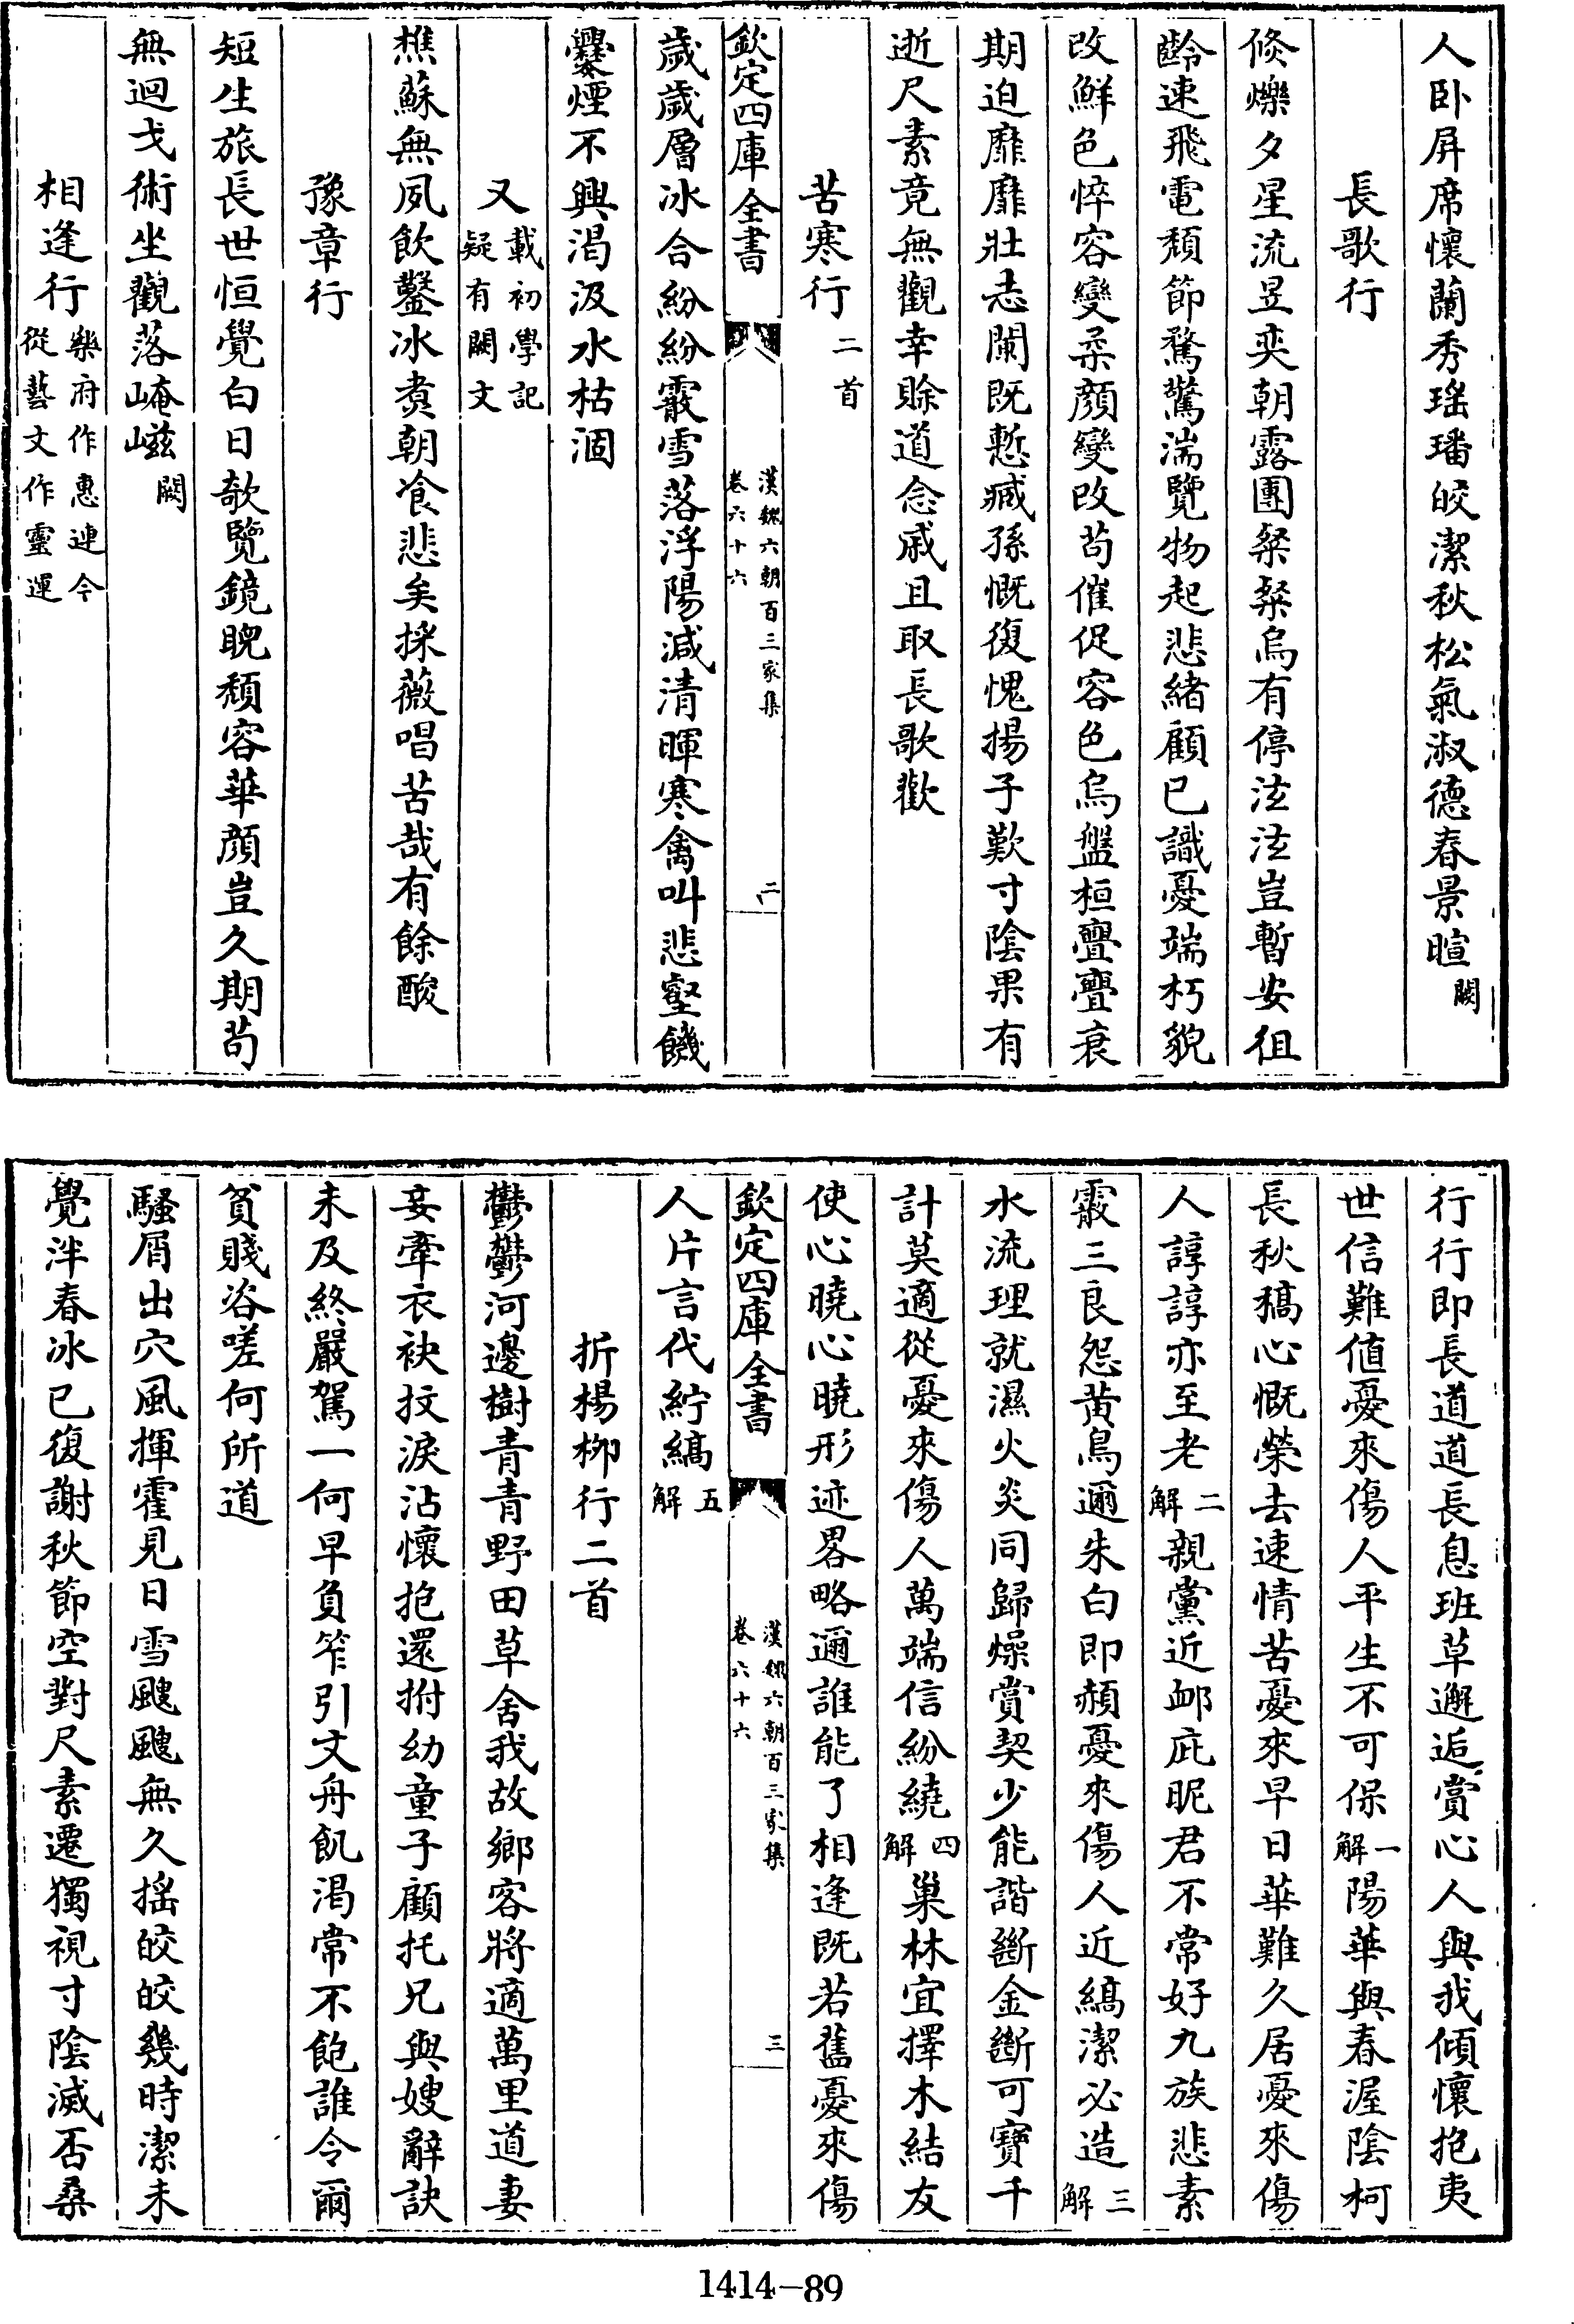 人卧屏席懷蘭秀瑤璠皎潔秋松氣淑德春景暄闕
長歌行
倐爍夕星流昱奕朝露團粲粲烏有停泫泫豈暫安徂
齡速飛電頹節騖驚湍覽物起悲緒顧已識憂端朽貌
改鮮色悴容變柔顔變改苟催促容色烏盤桓亹亹衰
期迫靡靡壯志闌既慙臧孫慨復愧揚子歎寸陰果有
逝尺素竟無觀幸賒道念戚且取長歌歡
苦寒行二首
欽定四庫全書 漢魏六朝百三家集 卷六十六 二
歲歲層冰合紛紛霰雪落浮陽減清暉寒禽叫悲壑饑
爨煙不興渴汲水枯涸
又載初學記疑有闕文
樵蘇無夙飲鑿冰煮朝飡悲矣採薇唱苦哉有餘酸
豫章行
短生旅長世恒覺白日欹覽鏡睨頹容華顔豈久期苟
無迴戈術坐觀落崦嵫闕
相逢行樂府作惠連今從藝文作靈運
行行即長道道長息班草邂逅賞心人與我傾懷抱夷
世信難值憂來傷人平生不可保一解陽華與春渥陰柯
長秋稿心慨榮去速情苦憂來早日華難久居憂來傷
人諄諄亦至老二解親黨近䘏庇昵君不常好九族悲素
霰三良怨黄鳥邇朱白即赬憂來傷人近縞潔必造三解
水流理就濕火炎同歸燥賞契少能諧斷金斷可寶千
計莫適從憂來傷人萬端信紛繞四解巢林宜擇木結友
使心曉心曉形迹畧略邇誰能了相逢既若舊憂來傷
欽定四庫全書 漢魏六朝百三家集 卷六十六 三
人片言代紵縞五解
折楊柳行二首
鬱鬱河邊樹青青野田草舍我故鄉客將適萬里道妻
妾牽衣袂抆淚沾懷抱還拊幼童子顧托兄與嫂辭訣
未及終嚴駕一何早負笮引文舟飢渴常不飽誰令爾
貧賤咨嗟何所道
騷屑出穴風揮霍見日雪颼颼無久搖皎皎幾時潔未
覺泮春冰已復謝秋節空對尺素遷獨視寸陰滅否桑
1414-89